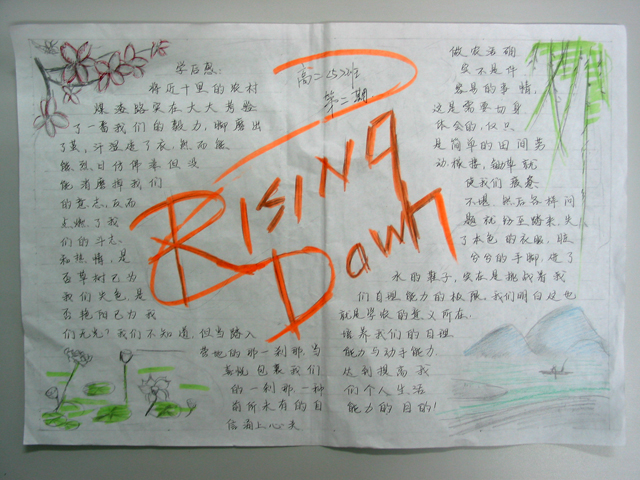 学后感:
将近十里的农村
煤渣路实在大大考验
了一番我们的毅力,脚磨出
了茧,汗湿透了衣,然而能
熊烈日仿佛奉但没
能消磨掉我们
的意志,反而
点燃了我
们的斗志
和热情,是
否草树已为
我们失色,是
否艳阳已为我
们无光?我们不知道,但当踏入
营地的那一刹那,当
喜悦包裹我们
的一刹那,一种
前所未有的自
信涌上心头
高二(5)班
第二期
RISING
Dawn
做农活确
实不是件
容易的事情,
这是需要切身
体会的,仅只
是简单的田间劳
动,锄草就
使我们疲惫
不堪,然后各样问
题就纷至踏来,失
了本色的衣服,脏
兮兮的手脚,进了
水的鞋子,实在是挑战着我
们自理能力的极限。我们明白这也
就是学农的意义所在:
培养我们的自理
能力与动手能力
达到提高我
们个人生活
能力的目的!